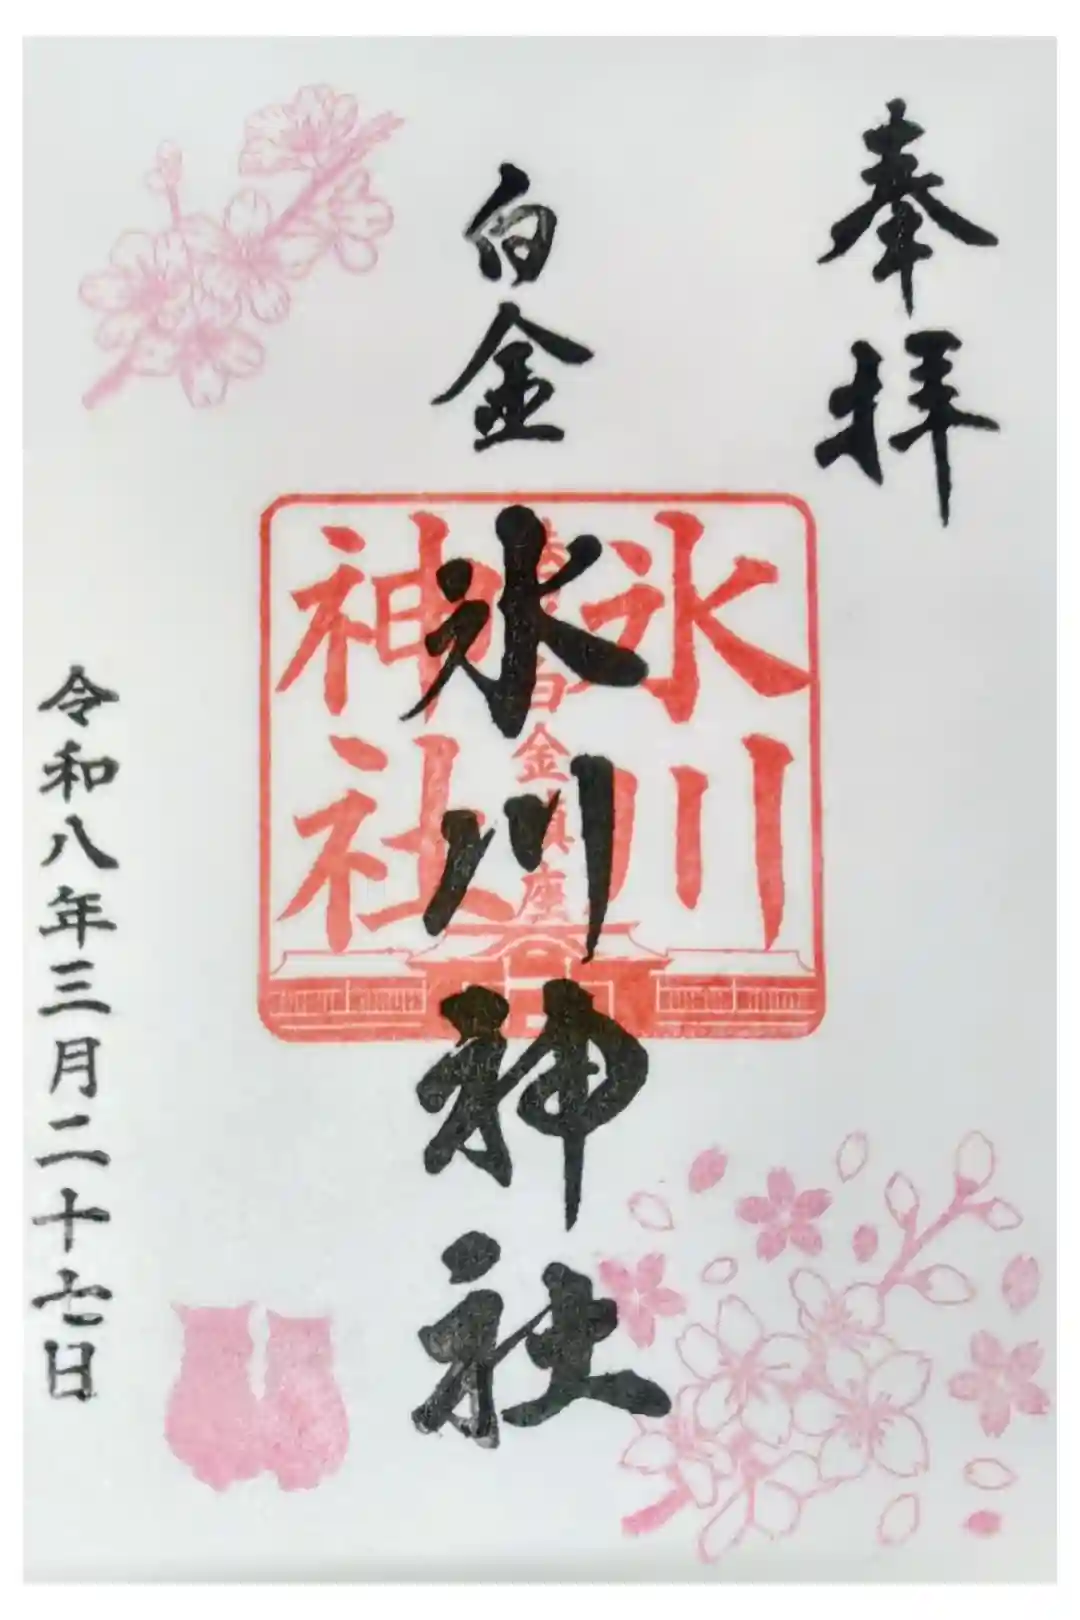 奉拝
白金
氷川神社
氷川
神社
白金鎮座
令和八年三月二十七日